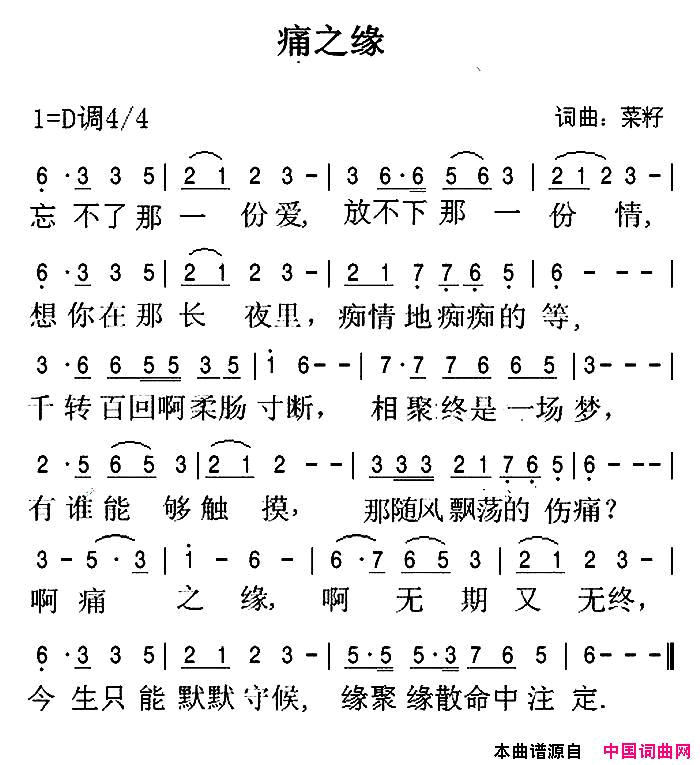 痛之缘
1=D调4/4 词曲：菜籽
6 · 3 3 5 | 2 1 2 3 - | 3 6 · 6 5 6 3 | 2 1 2 3 - |
忘不了那一份爱,放不下那一份情,
6 · 3 3 5 | 2 1 2 3 - | 2 1 7 7 6 5 | 6 - - - |
想你在那长夜里，痴情地痴痴的等,
3 · 6 6 5 5 3 5 | 1 6 - - | 7 · 7 7 6 6 5 | 3 - - - |
千转百回啊柔肠寸断，相聚终是一场梦，
2 · 5 6 5 3 | 2 1 2 - - | 3 3 3 2 1 7 6 5 | 6 - - - |
有谁能够触摸，那随风飘荡的伤痛？
3 - 5 · 3 | 1 - 6 - | 6 · 7 6 5 3 | 2 1 2 3 - |
啊痛之缘，啊无期又无终，
6 · 3 3 5 | 2 1 2 3 - | 5 · 5 5 · 3 7 6 5 | 6 - - - ‖
今生只能默默守候,缘聚缘散命中注定.
本曲谱源自 中国词曲网